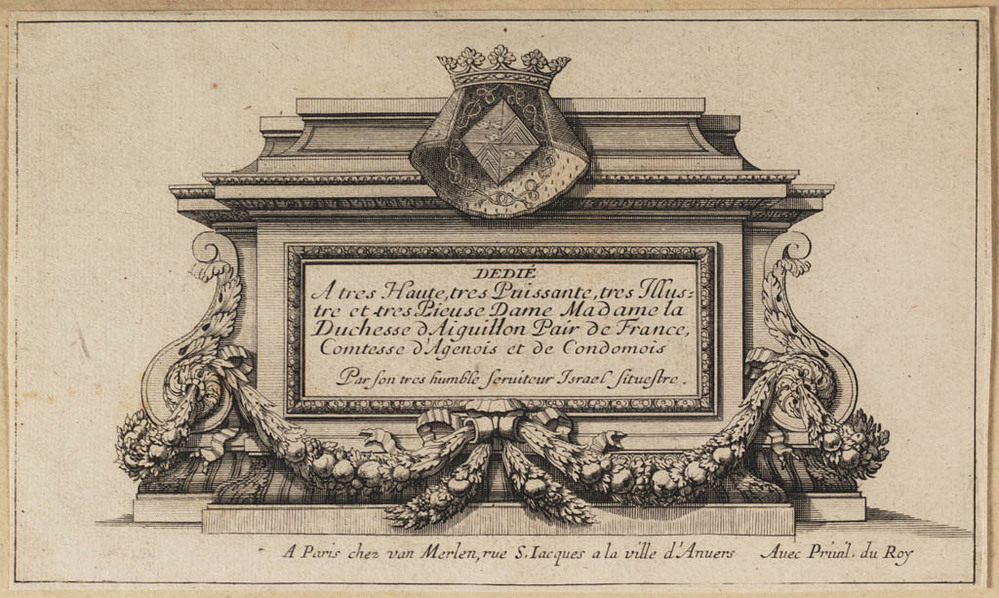 DEDIÉ
A tres Haute, tres Puissante, tres Illus=
tre et tres Pieuse Dame Madame la
Duchesse d'Aiguillon Pair de France,
Comtesse d'Agenois et de Condomois
Par son tres humble seruiteur Israel situestre.
A Paris chez van Merlen, rue S. Iacques a la ville d'Anuers Auec Priuil. du Roy